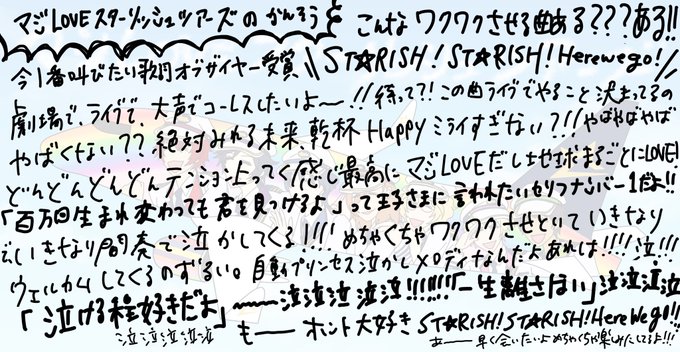 マジLOVEスターリッシュツアーズのかんそう
こんなワクワクさせる曲ある???ある!!
今1番叫びたい歌詞オブザイヤー受賞 \\ST☆RISH! ST☆RISH! Here we go!//
劇場で、ライブで、大声でコーレスしたいよ〜!! 待って?! この曲ライブでやること決まってるの
やばくない?? 絶対みれる未来、乾杯 Happy ミライすぎない?!! やばやばやば
どんどんどんどんテンション上ってく感じ最高にマジLOVEだし地球まるごとにLOVE!
「百万回生まれ変わっても君を見つけるよ」って王子さまに言われたいセリフナンバー1だよ!!
いきなり間奏で泣かしてくる!!!! めちゃくちゃワクワクさせといていきなり
ウェルカムしてくるのずるい。自動プリンセス泣かしメロディなんだよあれは!!!! 泣!!!
「泣ける程好きだよ」〜〜〜泣泣泣泣泣!!!!!!!「一生離さない」泣泣泣泣
泣泣泣泣泣
も〜〜ホント大好き ST☆RISH! ST☆RISH! Here We go!!
あ〜〜早く会いたいよめちゃくちゃ楽しみにしてるよ!!!